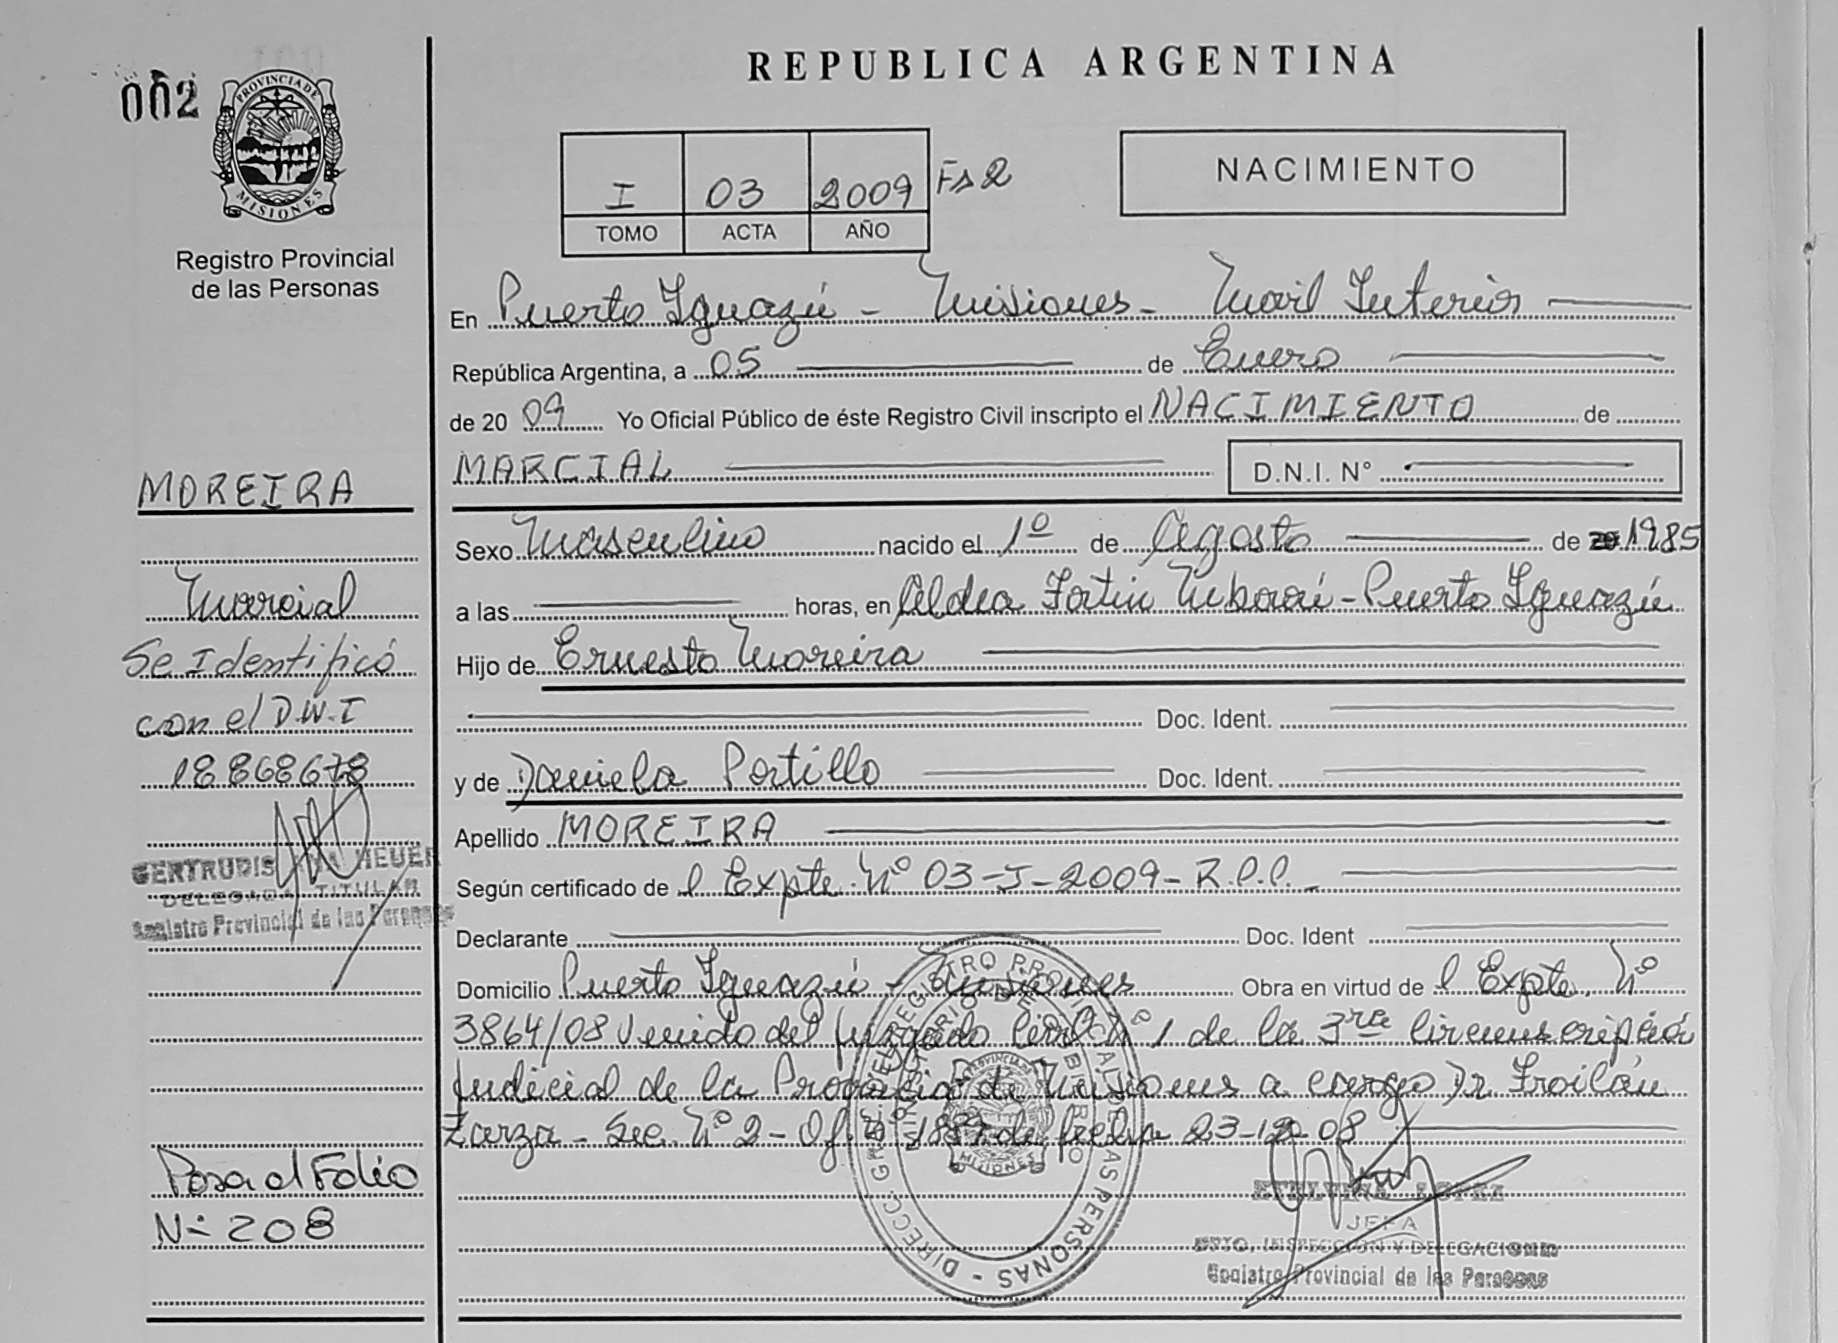 REPUBLICA ARGENTINA
002
PROVINCIA DE
MISIONES
Registro Provincial
de las Personas
I 03 2009 Fs 2
TOMO ACTA AÑO
NACIMIENTO
En Puerto Iguazú - Misiones - Movil Interior
República Argentina, a 05 de Enero
de 20 09 Yo Oficial Público de éste Registro Civil inscripto el NACIMIENTO de
MARCIAL D.N.I. N°
Sexo Masculino nacido el 1º de Agosto de 20 1985
a las horas, en Aldea Fortin Mbororé - Puerto Iguazú
Hijo de Ernesto Moreira
Doc. Ident.
y de Daniela Portillo Doc. Ident.
Apellido MOREIRA
Según certificado de l Expte. Nº 03-J-2009-R.P.P.
Declarante Doc. Ident
Domicilio Puerto Iguazú - Misiones Obra en virtud de l Expte. Nº
3864/08 Venido del Juzgado Civil Nº 1 de la 3ra Circunscripción
Judicial de la Provincia de Misiones a cargo Dr Froilán
Zarza - Sec. Nº 2 - Of. Nº de fecha 23-12-08
MOREIRA
Marcial
Se Identificó
con el D.N.I
18868678
GERTRUDIS HEUER
DELEGADA TITULAR
Registro Provincial de las Personas
Pasa al Folio
Nº 208
JEFA
DPTO. INSPECCION Y DELEGACIONES
Registro Provincial de las Personas